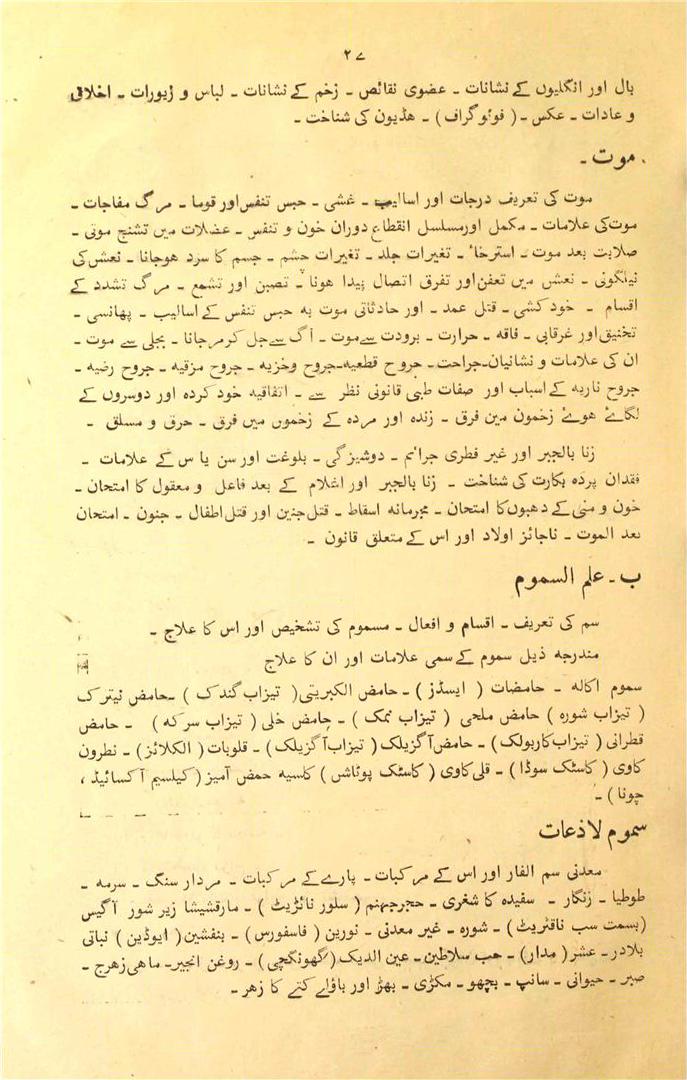 ۲۷
بال اور انگلیوں کے نشانات ۔ عضوی نقائص ۔ زخم کے نشانات ۔ لباس و زیورات ۔ اخلاق
و عادات ۔ عکس ۔ ( فوٹو گراف ) ۔ ھڈیون کی شناخت ۔
موت ۔
موت کی تعریف درجات اور اسالیب ۔ غشی ۔ حبس تنفس اور قوما ۔ مرگ مفاجات ۔
موت کی علامات ۔ مکمل اور مسلسل انقطاع دوران خون و تنفس ۔ عضلات میں تشنج موتی ۔
صلابت بعد موت ۔ استرخاء ۔ تغیرات جلد ۔ تغیرات چشم ۔ جسم کا سرد ہوجانا ۔ نعش کی
نیلگونی ۔ نعش میں تعفن اور تفرق اتصال پیدا ہونا ۔ تصبن اور تشمع ۔ مرگ تشدد کے
اقسام ۔ خود کشی ۔ قتل عمد ۔ اور حادثاتی موت بہ حبس تنفس کے اسالیب ۔ پھانسی ۔
تخنیق اور غرقابی ۔ فاقہ ۔ حرارت ۔ برودت سے موت ۔ آگ سے جل کر مرجانا ۔ بجلی سے موت ۔
ان کی علامات و نشانیاں ۔ جراحت ۔ جروح قطعیہ ۔ جروح وخزیہ ۔ جروح مزقیہ ۔ جروح رضیہ ۔
جروح ناریہ کے اسباب اور صفات طبی قانونی نظر سے ۔ اتفاقیہ خود کردہ اور دوسروں کے
لگائے ہوئے زخمون مین فرق ۔ زندہ اور مردہ کے زخموں میں فرق ۔ حرق و مسلق ۔
زنا بالجبر اور غیر فطری جرائم ۔ دوشیزگی ۔ بلوغت اور سن یاس کے علامات ۔
فقدان پردہ بکارت کی شناخت ۔ زنا بالجبر اور اغلام کے بعد فاعل و معقول کا امتحان ۔
خون و منی کے دھبوں کا امتحان ۔ مجرمانہ اسقاط ۔ قتل جنین اور قتل اطفال ۔ جنون ۔ امتحان
بعد الموت ۔ ناجائز اولاد اور اس کے متعلق قانون ۔
ب ۔ علم السموم
سم کی تعریف ۔ اقسام و افعال ۔ مسموم کی تشخیص اور اس کا علاج ۔
مندرجہ ذیل سموم کے سمی علامات اور ان کا علاج
سموم اکالہ ۔ حامضات ( ایسڈز ) ۔ حامض الکبریتی ( تیزاب گندک ) ۔ حامض نیترک
( تیزاب شورہ ) حامض ملحی ( تیزاب نمک ) ۔ حامض خلی ( تیزاب سرکہ ) ۔ حامض
قطرانی ( تیزاب کاربولک ) ۔ حامض آگزیلک ( تیزاب آگزیلک ) ۔ قلویات ( الکلائز ) ۔ نطرون
کاوی ( کاسٹک سوڈا ) ۔ قلی کاوی ( کاسٹک پوٹاش ) کلسیہ حمض آمیز ( کیلسیم آکسائیڈ ،
چونا ) ۔
سموم لاذعات
معدنی سم الفار اور اس کے مرکبات ۔ پارے کے مرکبات ۔ مردار سنگ ۔ سرمہ ۔
طوطیا ۔ زنگار ۔ سفیدہ کاشغری ۔ حجر جہنم ( سلور نائڑیٹ ) ۔ مارقشیشا زیر شور آگیس
( بسمت سب ناقٹریٹ ) ۔ شورہ ۔ غیر معدنی ۔ نورین ( فاسفورس ) ۔ بنفشین ( ایوڈین ) نباتی
بلادر ۔ عشر ( مدار ) ۔ حب سلاطین ۔ عین الدیک ( گھونگچی ) ۔ روغن انجیر ۔ ماھی زھرج ۔
صبر ۔ حیوانی ۔ سانپ ۔ بچھو ۔ مکڑی ۔ بھڑ اور باؤلے کتے کا زھر ۔